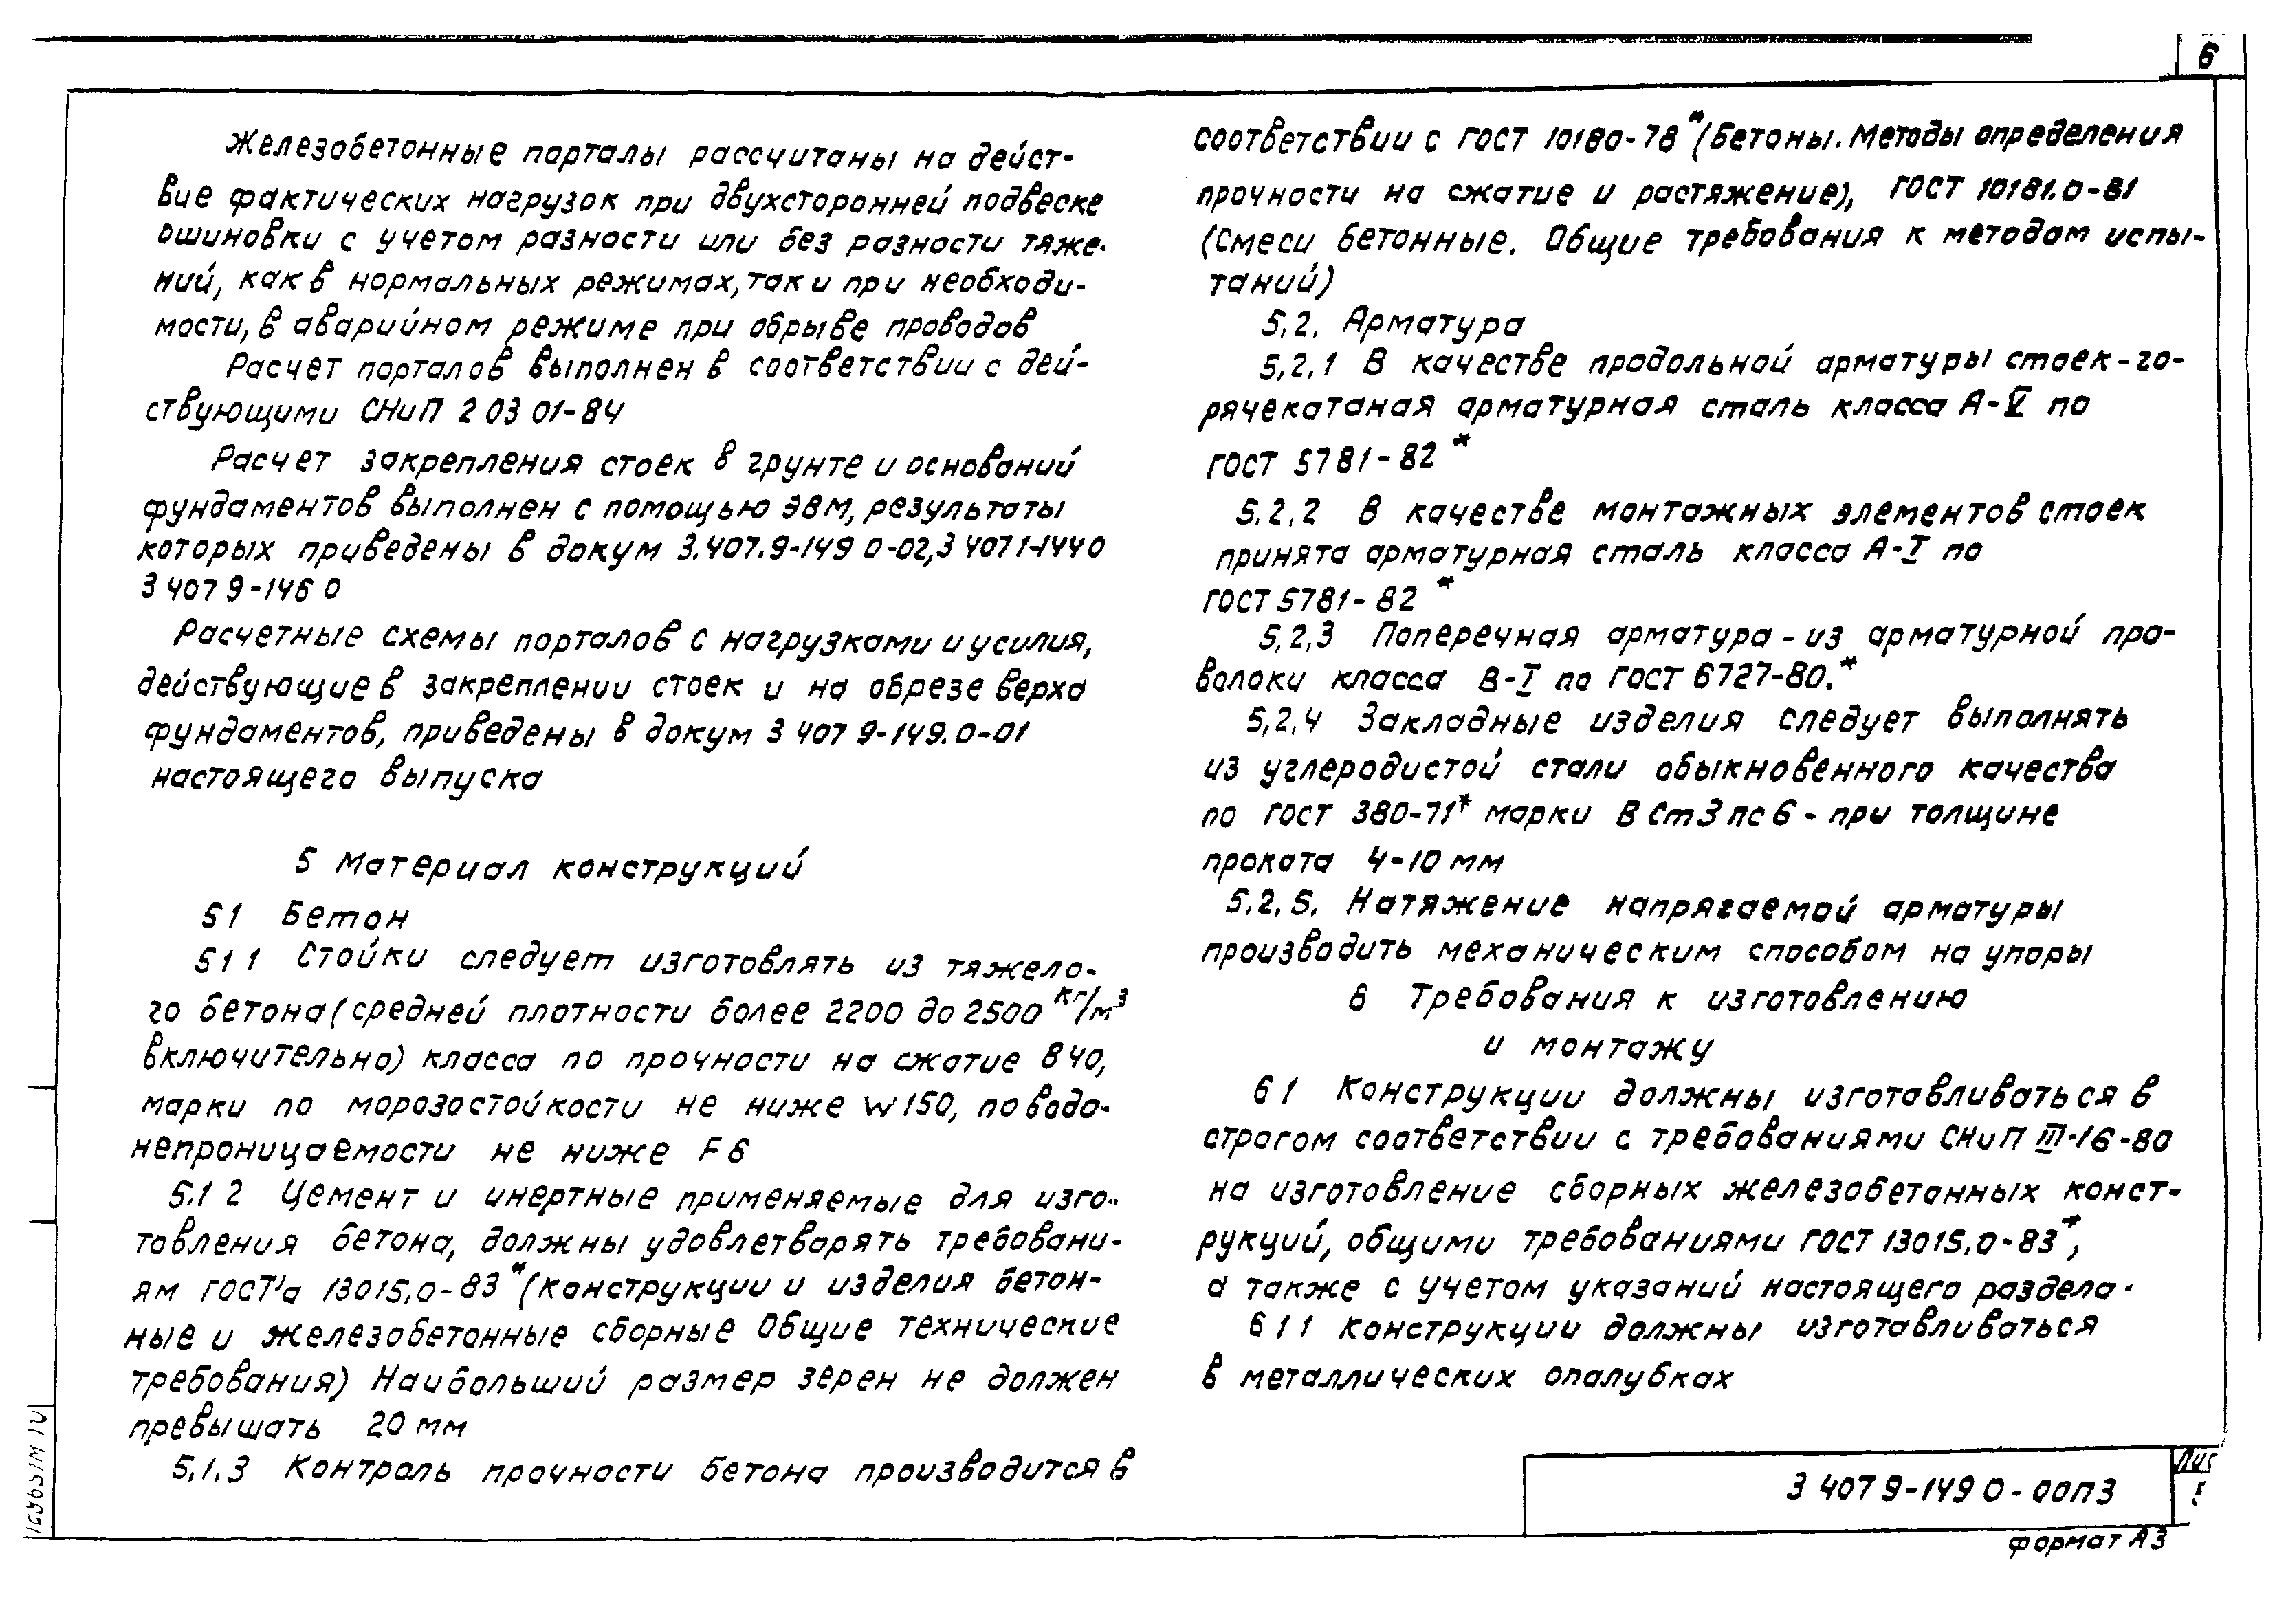 6
Железобетонные порталы рассчитаны на дейст-
вие фактических нагрузок при двухсторонней подвеске
ошиновки с учетом разности или без разности тяже-
ний, как в нормальных режимах, так и при необходи-
мости, в аварийном режиме при обрыве проводов
Расчет порталов выполнен в соответствии с дей-
ствующими СНиП 2 03 01-84
Расчет закрепления стоек в грунте и оснований
фундаментов выполнен с помощью ЭВМ, результаты
которых приведены в докум 3.407.9-149 0-02, 3 407 1-144 0
3 407 9-146 0
Расчетные схемы порталов с нагрузками и усилия,
действующие в закреплении стоек и на обрезе верха
фундаментов, приведены в докум 3 407 9-149.0-01
настоящего выпуска
5 Материал конструкций
5 1 Бетон
5 1 1 Стойки следует изготовлять из тяжело-
го бетона (средней плотности более 2200 до 2500 кг/м³
включительно) класса по прочности на сжатие В 40,
марки по морозостойкости не ниже W 150, по водо-
непроницаемости не ниже F 6
5.1 2 Цемент и инертные применяемые для изго-
товления бетона, должны удовлетворять требовани-
ям ГОСТ'а 13015.0-83* (Конструкции и изделия бетон-
ные и железобетонные сборные Общие технические
требования) Наибольший размер зерен не должен
превышать 20 мм
5.1.3 Контроль прочности бетона производится в
соответствии с ГОСТ 10180-78* (Бетоны. Методы определения
прочности на сжатие и растяжение), ГОСТ 10181.0-81
(Смеси бетонные. Общие требования к методам испы-
таний)
5.2. Арматура
5.2.1 В качестве продольной арматуры стоек - го-
рячекатаная арматурная сталь класса А-V по
ГОСТ 5781-82*
5.2.2 В качестве монтажных элементов стоек
принята арматурная сталь класса А-I по
ГОСТ 5781-82*
5.2.3 Поперечная арматура - из арматурной про-
волоки класса В-I по ГОСТ 6727-80.*
5.2.4 Закладные изделия следует выполнять
из углеродистой стали обыкновенного качества
по ГОСТ 380-71* марки В Ст 3 пс 6 - при толщине
проката 4-10 мм
5.2.5. Натяжение напрягаемой арматуры
производить механическим способом на упоры
6 Требования к изготовлению
и монтажу
6 1 Конструкции должны изготавливаться в
строгом соответствии с требованиями СНиП III-16-80
на изготовление сборных железобетонных конст-
рукций, общими требованиями ГОСТ 13015.0-83*,
а также с учетом указаний настоящего раздела.
6 1 1 Конструкции должны изготавливаться
в металлических опалубках
3 407 9-149 0-00ПЗ
формат А3